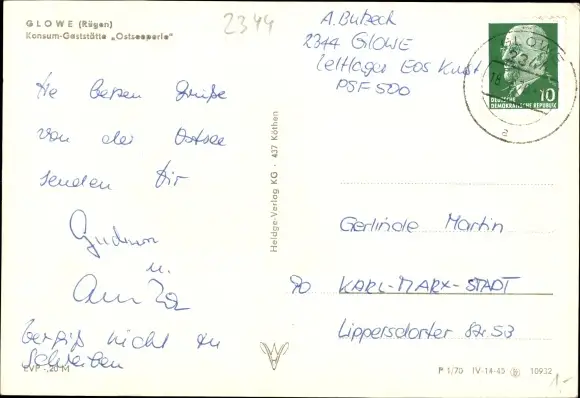 GLOWE (Rügen)
Konsum-Gaststätte „Ostseeperle"
2344
A. Butzeck
2344 GLOWE
Zeltlager EOS
PSF 500
GLOWE
2344
18
a
10
DEUTSCHE
DEMOKRATISCHE REPUBLIK
Die besten Grüße
von der Ostsee
senden Dir
Gudrun
u.
Vergiß nicht zu
schreiben
EVP -,20 M
Heldge-Verlag KG · 437 Köthen
Gerlinde Martin
90 KARL-MARX-STADT
Lippersdorfer Str. 53
P 1/70 IV-14-45 10932
1.-